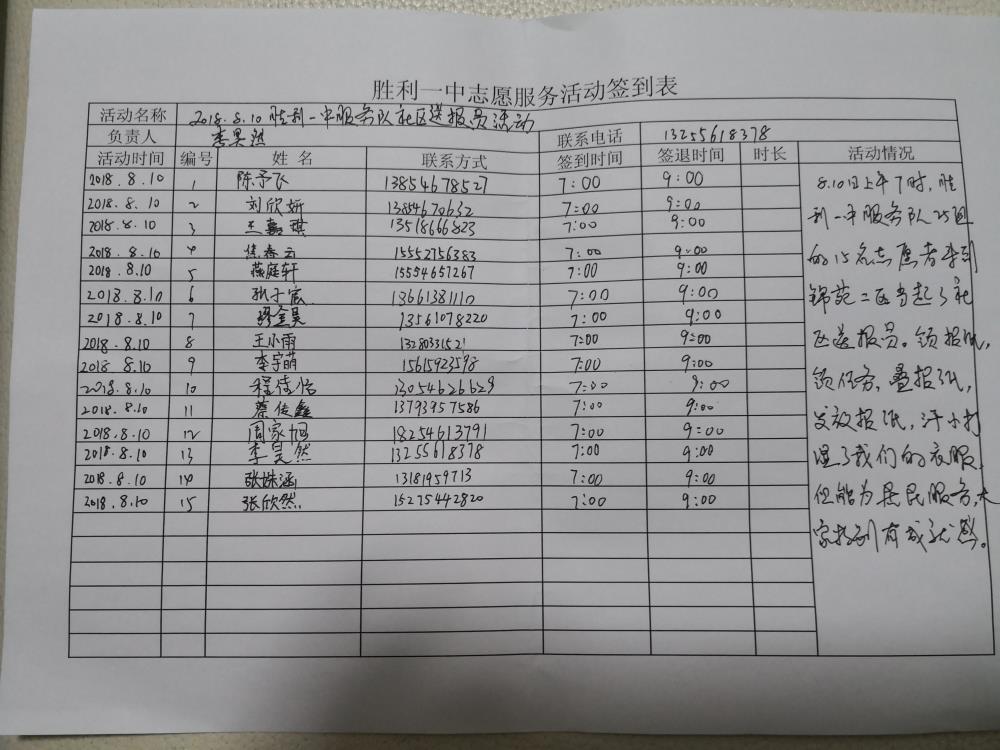 胜利一中志愿服务活动签到表
活动名称 2018.8.10 胜利一中服务队社区送报员活动
负责人 李昊然 联系电话 13255618378
活动时间 编号 姓名 联系方式 签到时间 签退时间 时长 活动情况
2018.8.10 1 陈予飞 13854678527 7:00 9:00
2018.8.10 2 刘欣妍 13854670632 7:00 9:00
2018.8.10 3 王嘉琪 13518666823 7:00 9:00
2018.8.10 4 焦春云 15552756383 7:00 9:00
2018.8.10 5 燕庭轩 15554657267 7:00 9:00
2018.8.10 6 张子宸 13661381110 7:00 9:00
2018.8.10 7 缪金昊 13561078220 7:00 9:00
2018.8.10 8 王小雨 13280331521 7:00 9:00
2018.8.10 9 李宇萌 15615923598 7:00 9:00
2018.8.10 10 程佳怡 13054626629 7:00 9:00
2018.8.10 11 蔡传鑫 13793957586 7:00 9:00
2018.8.10 12 周家旭 18254613791 7:00 9:00
2018.8.10 13 李昊然 13255618378 7:00 9:00
2018.8.10 14 张姝涵 13181959713 7:00 9:00
2018.8.10 15 张欣然 15275442820 7:00 9:00
8.10日上午7时,胜
利一中服务队25组
的15名志愿者来到
锦苑二区当起了社
区送报员。领报纸,
领任务,叠报纸,
发放报纸,汗水打
湿了我们的衣服
但能为居民服务,大
家找到有成就感。